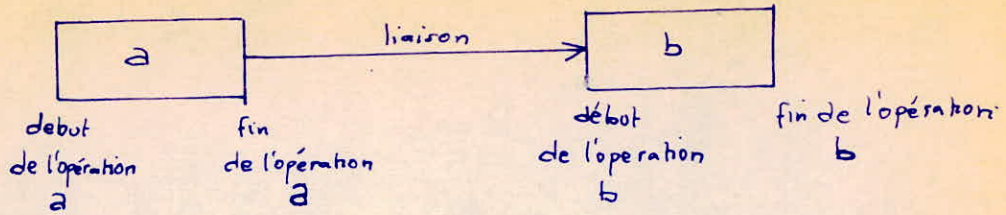 a
liaison
b
debut
de l'opération
a
fin
de l'opération
a
début
de l'operation
b
fin de l'opération
b